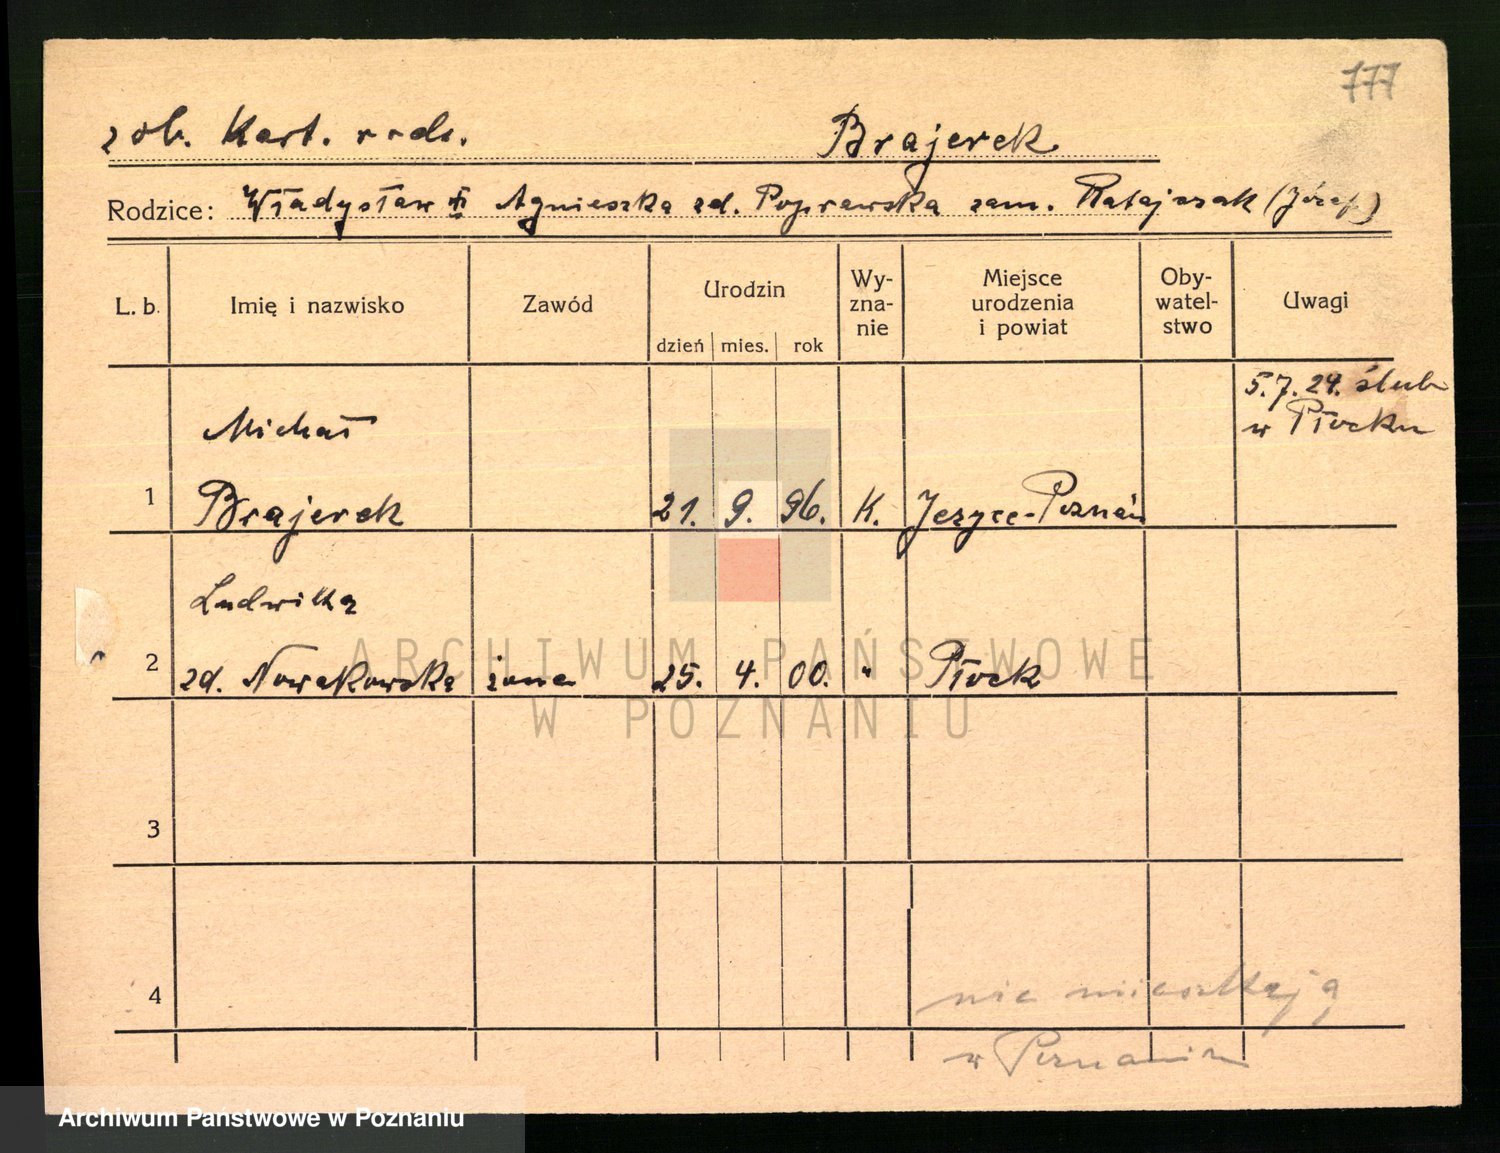 777
zob. Kart. rodz. Brajerek
Rodzice: Władysław Agnieszka zd. Poprawska zam. Ratajczak (Józef)
L. b. Imię i nazwisko Zawód Urodzin dzień mies. rok Wy-zna-nie Miejsce urodzenia i powiat Oby-watel-stwo Uwagi
5.7.24. ślub
w Płocku
Michał
1 Brajerek 21. 9. 96. K. Jeżyce-Poznań
Ludwika
2 zd. Nowakowska żona 25. 4. 00. " Płock
ARCHIWUM PAŃSTWOWE
W POZNANIU
3
4 nie mieszkają
w Poznaniu
Archiwum Państwowe w Poznaniu